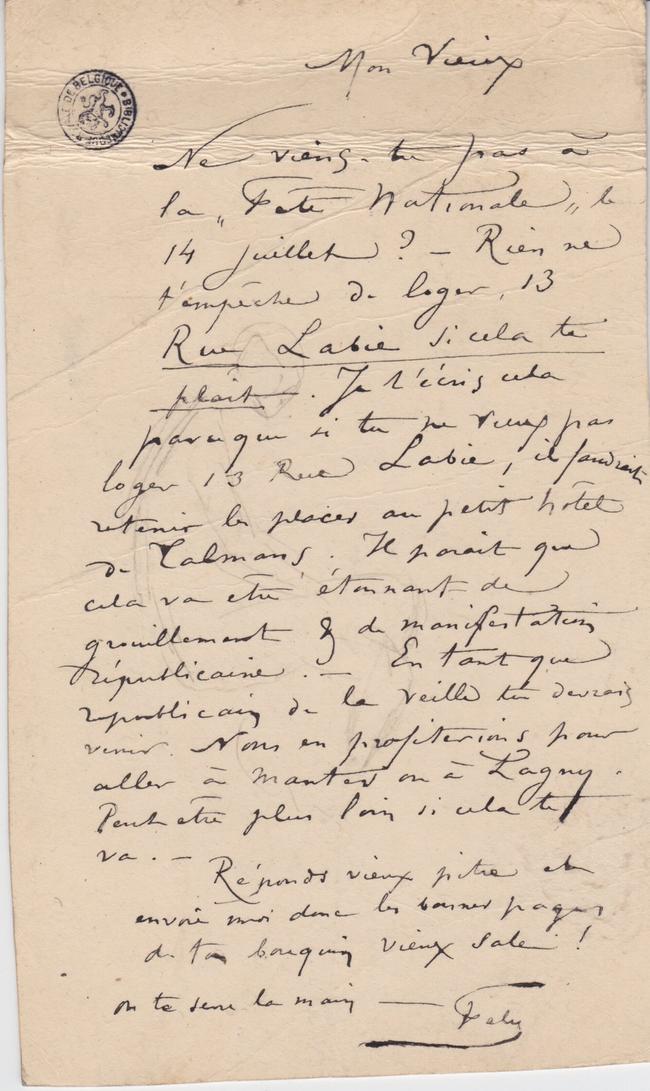 Mon Vieux
Ne viens-tu pas à
la „Fête Nationale„ le
14 juillet ? — Rien ne
t'empêche de loger, 13
Rue Labie si cela te
plait. Je t'écris cela
parceque si tu ne veux pas
loger 13 Rue Labie, il faudrait
retenir les places au petit hôtel
de Talmans. Il parait que
cela va être étonnant de
grouillement & de manifestation
républicaine. — En tant que
republicain de la veille tu devrais
venir. Nous en profiterions pour
aller à Mantes ou à Lagny.
Peut être plus loin si cela te
va. —
Réponds vieux pitre et
envoie moi donc les bonnes pages
de ton bouquin vieux sale !
on te serre la main —
Fely
DE BELGIQUE * BIBLIOTHEQUE